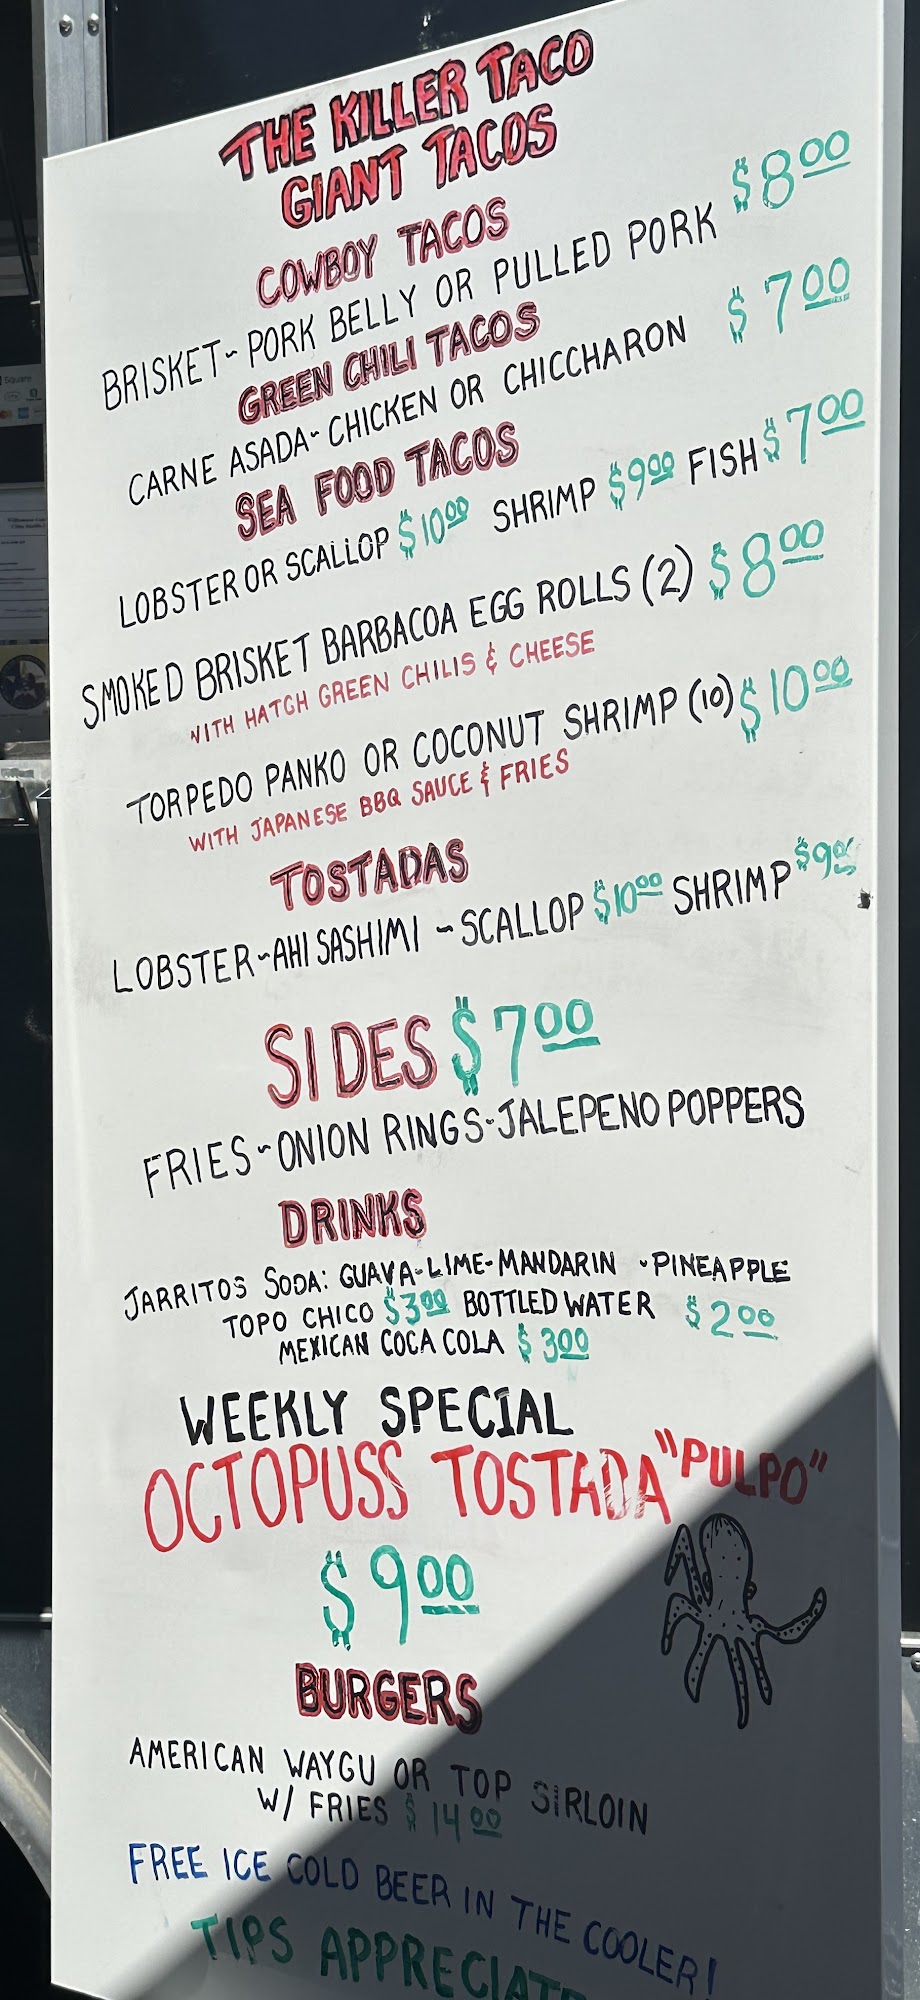 THE KILLER TACO
GIANT TACOS
COWBOY TACOS $8.00
BRISKET~PORK BELLY OR PULLED PORK
GREEN CHILI TACOS $7.00
CARNE ASADA~CHICKEN OR CHICCHARON
SEA FOOD TACOS
LOBSTER OR SCALLOP $10.00 SHRIMP $9.00 FISH $7.00
SMOKED BRISKET BARBACOA EGG ROLLS (2) $8.00
WITH HATCH GREEN CHILIS & CHEESE
TORPEDO PANKO OR COCONUT SHRIMP (10) $10.00
WITH JAPANESE BBQ SAUCE & FRIES
TOSTADAS
LOBSTER~AHI SASHIMI ~SCALLOP $10.00 SHRIMP $9.00
SIDES $7.00
FRIES~ONION RINGS~JALEPENO POPPERS
DRINKS
JARRITOS SODA: GUAVA-LIME-MANDARIN -PINEAPPLE
TOPO CHICO $3.00 BOTTLED WATER $2.00
MEXICAN COCA COLA $3.00
WEEKLY SPECIAL
OCTOPUSS TOSTADA "PULPO"
$9.00
BURGERS
AMERICAN WAYGU OR TOP SIRLOIN
W/ FRIES $14.00
FREE ICE COLD BEER IN THE COOLER!
TIPS APPRECIATE
Square